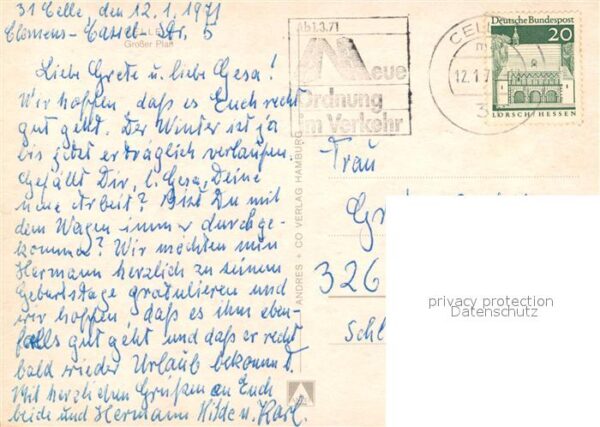 31 Celle, den 12.1.1971
Clemens-Cassel-Str. 5
CELLE
Großer Plan
Liebe Grete u. liebe Gesa!
Wir hoffen, daß es Euch recht
gut geht. Der Winter ist ja
bis jetzt erträglich verlaufen.
Gefällt Dir, l. Gesa, Deine
neue Arbeit? Bist Du mit
dem Wagen immer durchge-
komme? Wir möchten nun
Hermann herzlich zu seinem
Geburtstage gratulieren und
wir hoffen, daß es ihm eben-
falls gut geht und daß er recht
bald wieder Urlaub bekommt.
Mit herzlichen Grüßen an Euch
beide und Hermann Hilde u. Karl.
ANDRES + CO VERLAG HAMBURG
Ab 1.3.71
Neue
Ordnung
im Verkehr
CELLE
12.1.7
Deutsche Bundespost
20
LORSCH/HESSEN
Frau
326
Schl
privacy protection
Datenschutz